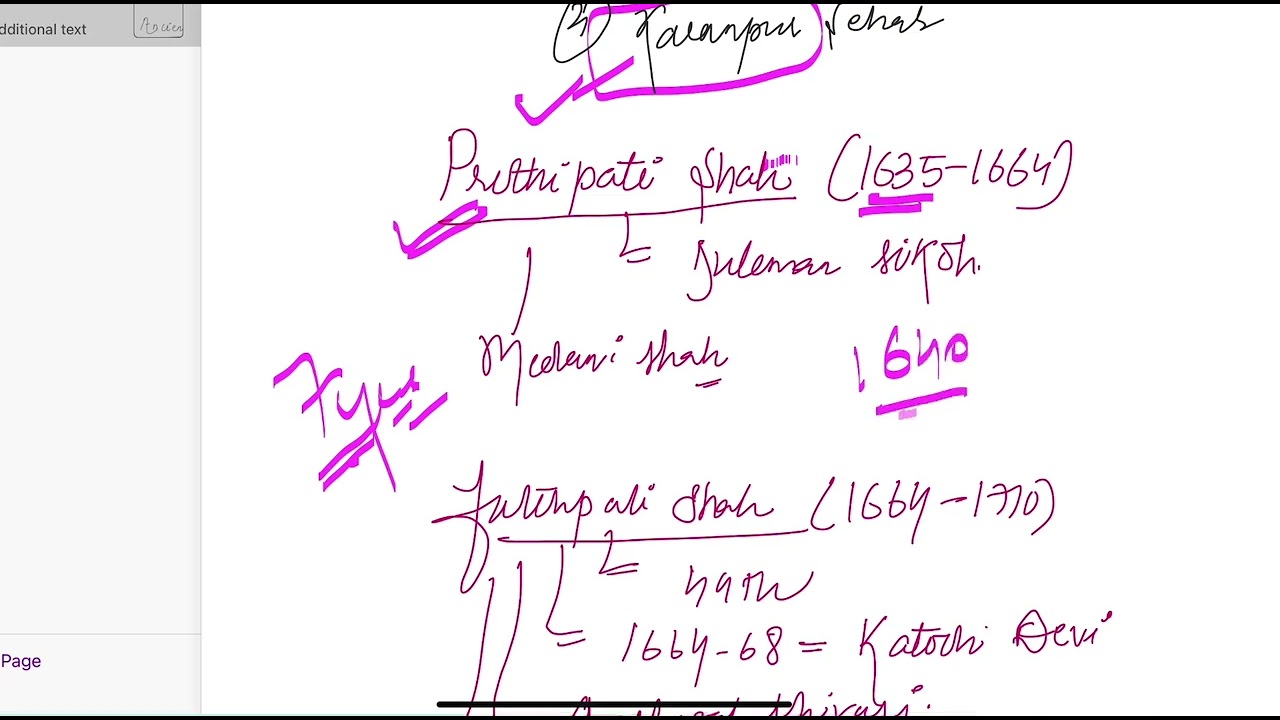 dditional text
(2) Karanpur
Prithipati Shah (1635-1664)
Suleman Sikoh.
Medani Shah
1640
Fatehpati Shah (1664-1770)
49th
1664-68 = Katochi Devi
Page